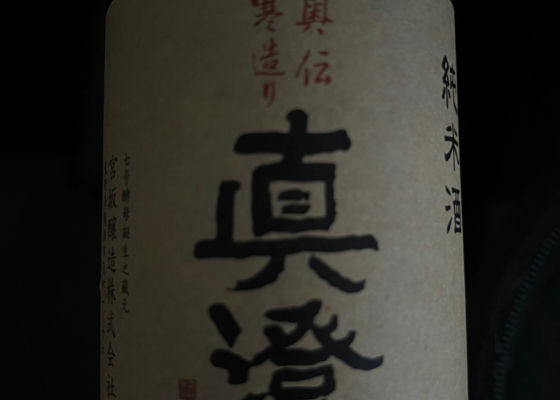 純米酒
奥伝
寒造り
真澄
七号酵母誕生之蔵元
宮坂醸造株式会社